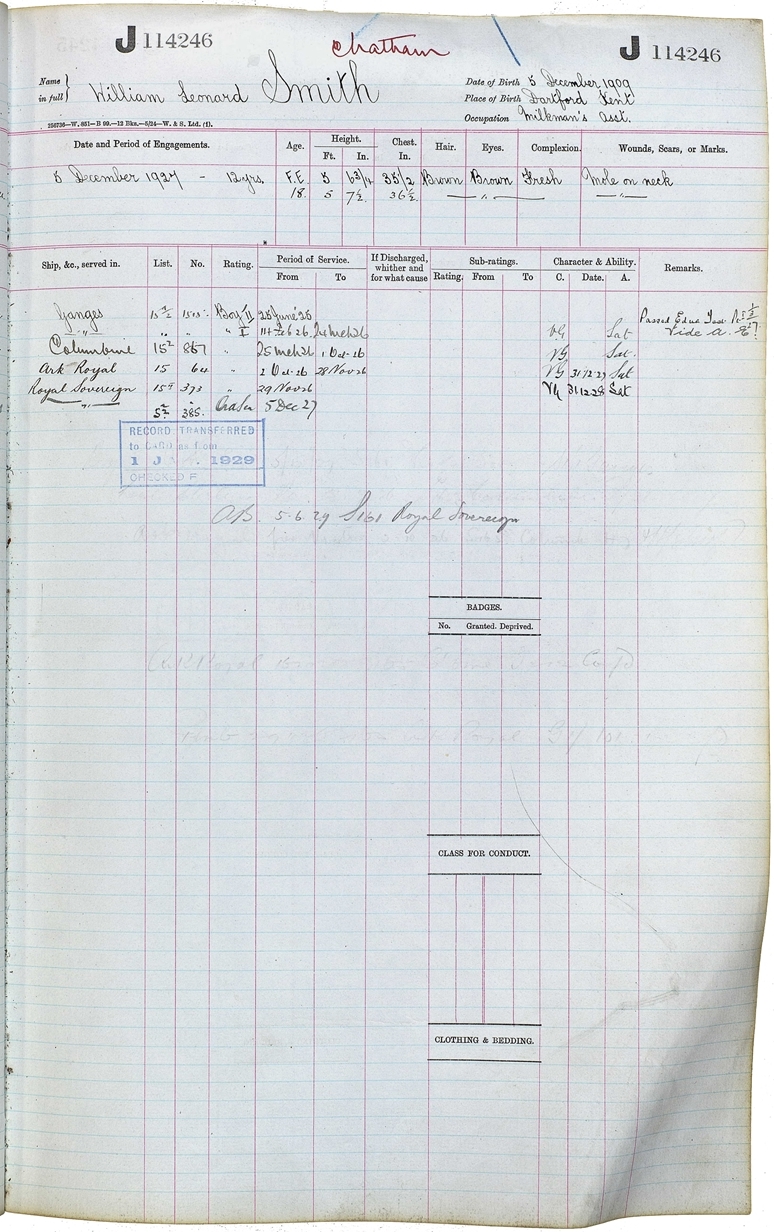 J 114246
Chatham
J 114246
Name in full } William Leonard Smith
Date of Birth 5 December 1909
Place of Birth Dartford Kent
Occupation Milkman's asst.
256736—W. 851—B 99.—12 Bks.—5/24—W. & S., Ltd. (I).
Date and Period of Engagements. Age. Height. Chest. Hair. Eyes. Complexion. Wounds, Scars, or Marks.
Ft. In. In.
5 December 1927 - 12 yrs. F.E. 5 6 3/4 35 1/2 Brown Brown Fresh Mole on neck
18. 5 7 1/2 36 1/2 — " — — " —
Ship, &c., served in. List. No. Rating. Period of Service. If Discharged, whither and for what cause Sub-ratings. Character & Ability. Remarks.
From To Rating. From To C. Date. A.
Ganges 15 Boy II 25 June 25 Passed Educ
— " — " " " I 24 Mch 26 VG Sat Vide A.
Columbine 15² 867 25 Mch 26 1 Oct 26 VG Sat.
Ark Royal 15 64 " 2 Oct 26 28 Nov 26 VG 31.12.27 Sat
Royal Sovereign 15 373 " 29 Nov 26 VG 31.12.28 Sat
— " — 5 385. Ord Sea 5 Dec 27
RECORD TRANSFERRED
to CARD as from
1 JAN. 1929
CHECKED
AB. 5.6.29 S161 Royal Sovereign
BADGES.
No. Granted. Deprived.
CLASS FOR CONDUCT.
CLOTHING & BEDDING.